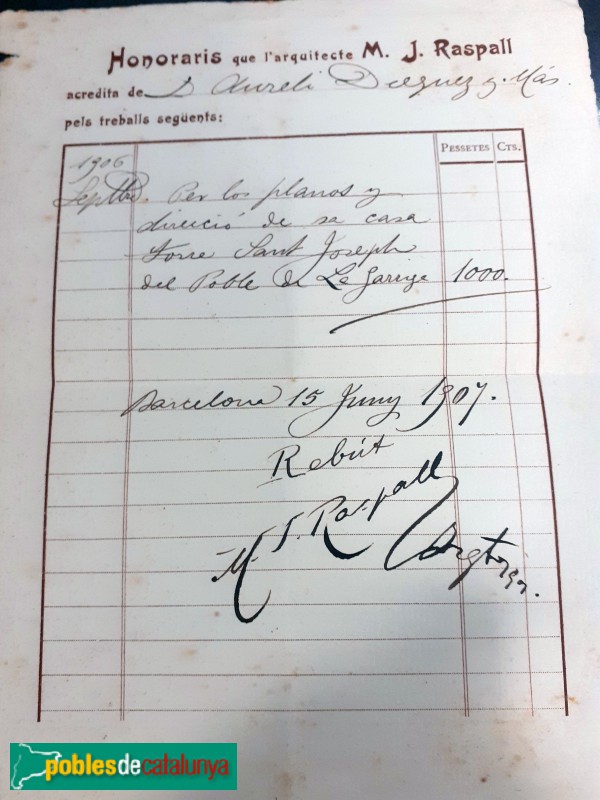 Honoraris que l'arquitecte M. J. Raspall
acredita de D Aureli Dieguez y Más.
pels treballs següents:
PESSETES CTS.
1906
Septbre. Per los planos y
direició de sa casa
torre Sant Joseph
del Poble de La Garriga 1000.
Barcelona 15 Juny 1907.
Rebút
M. J. Raspall
poblesdecatalunya